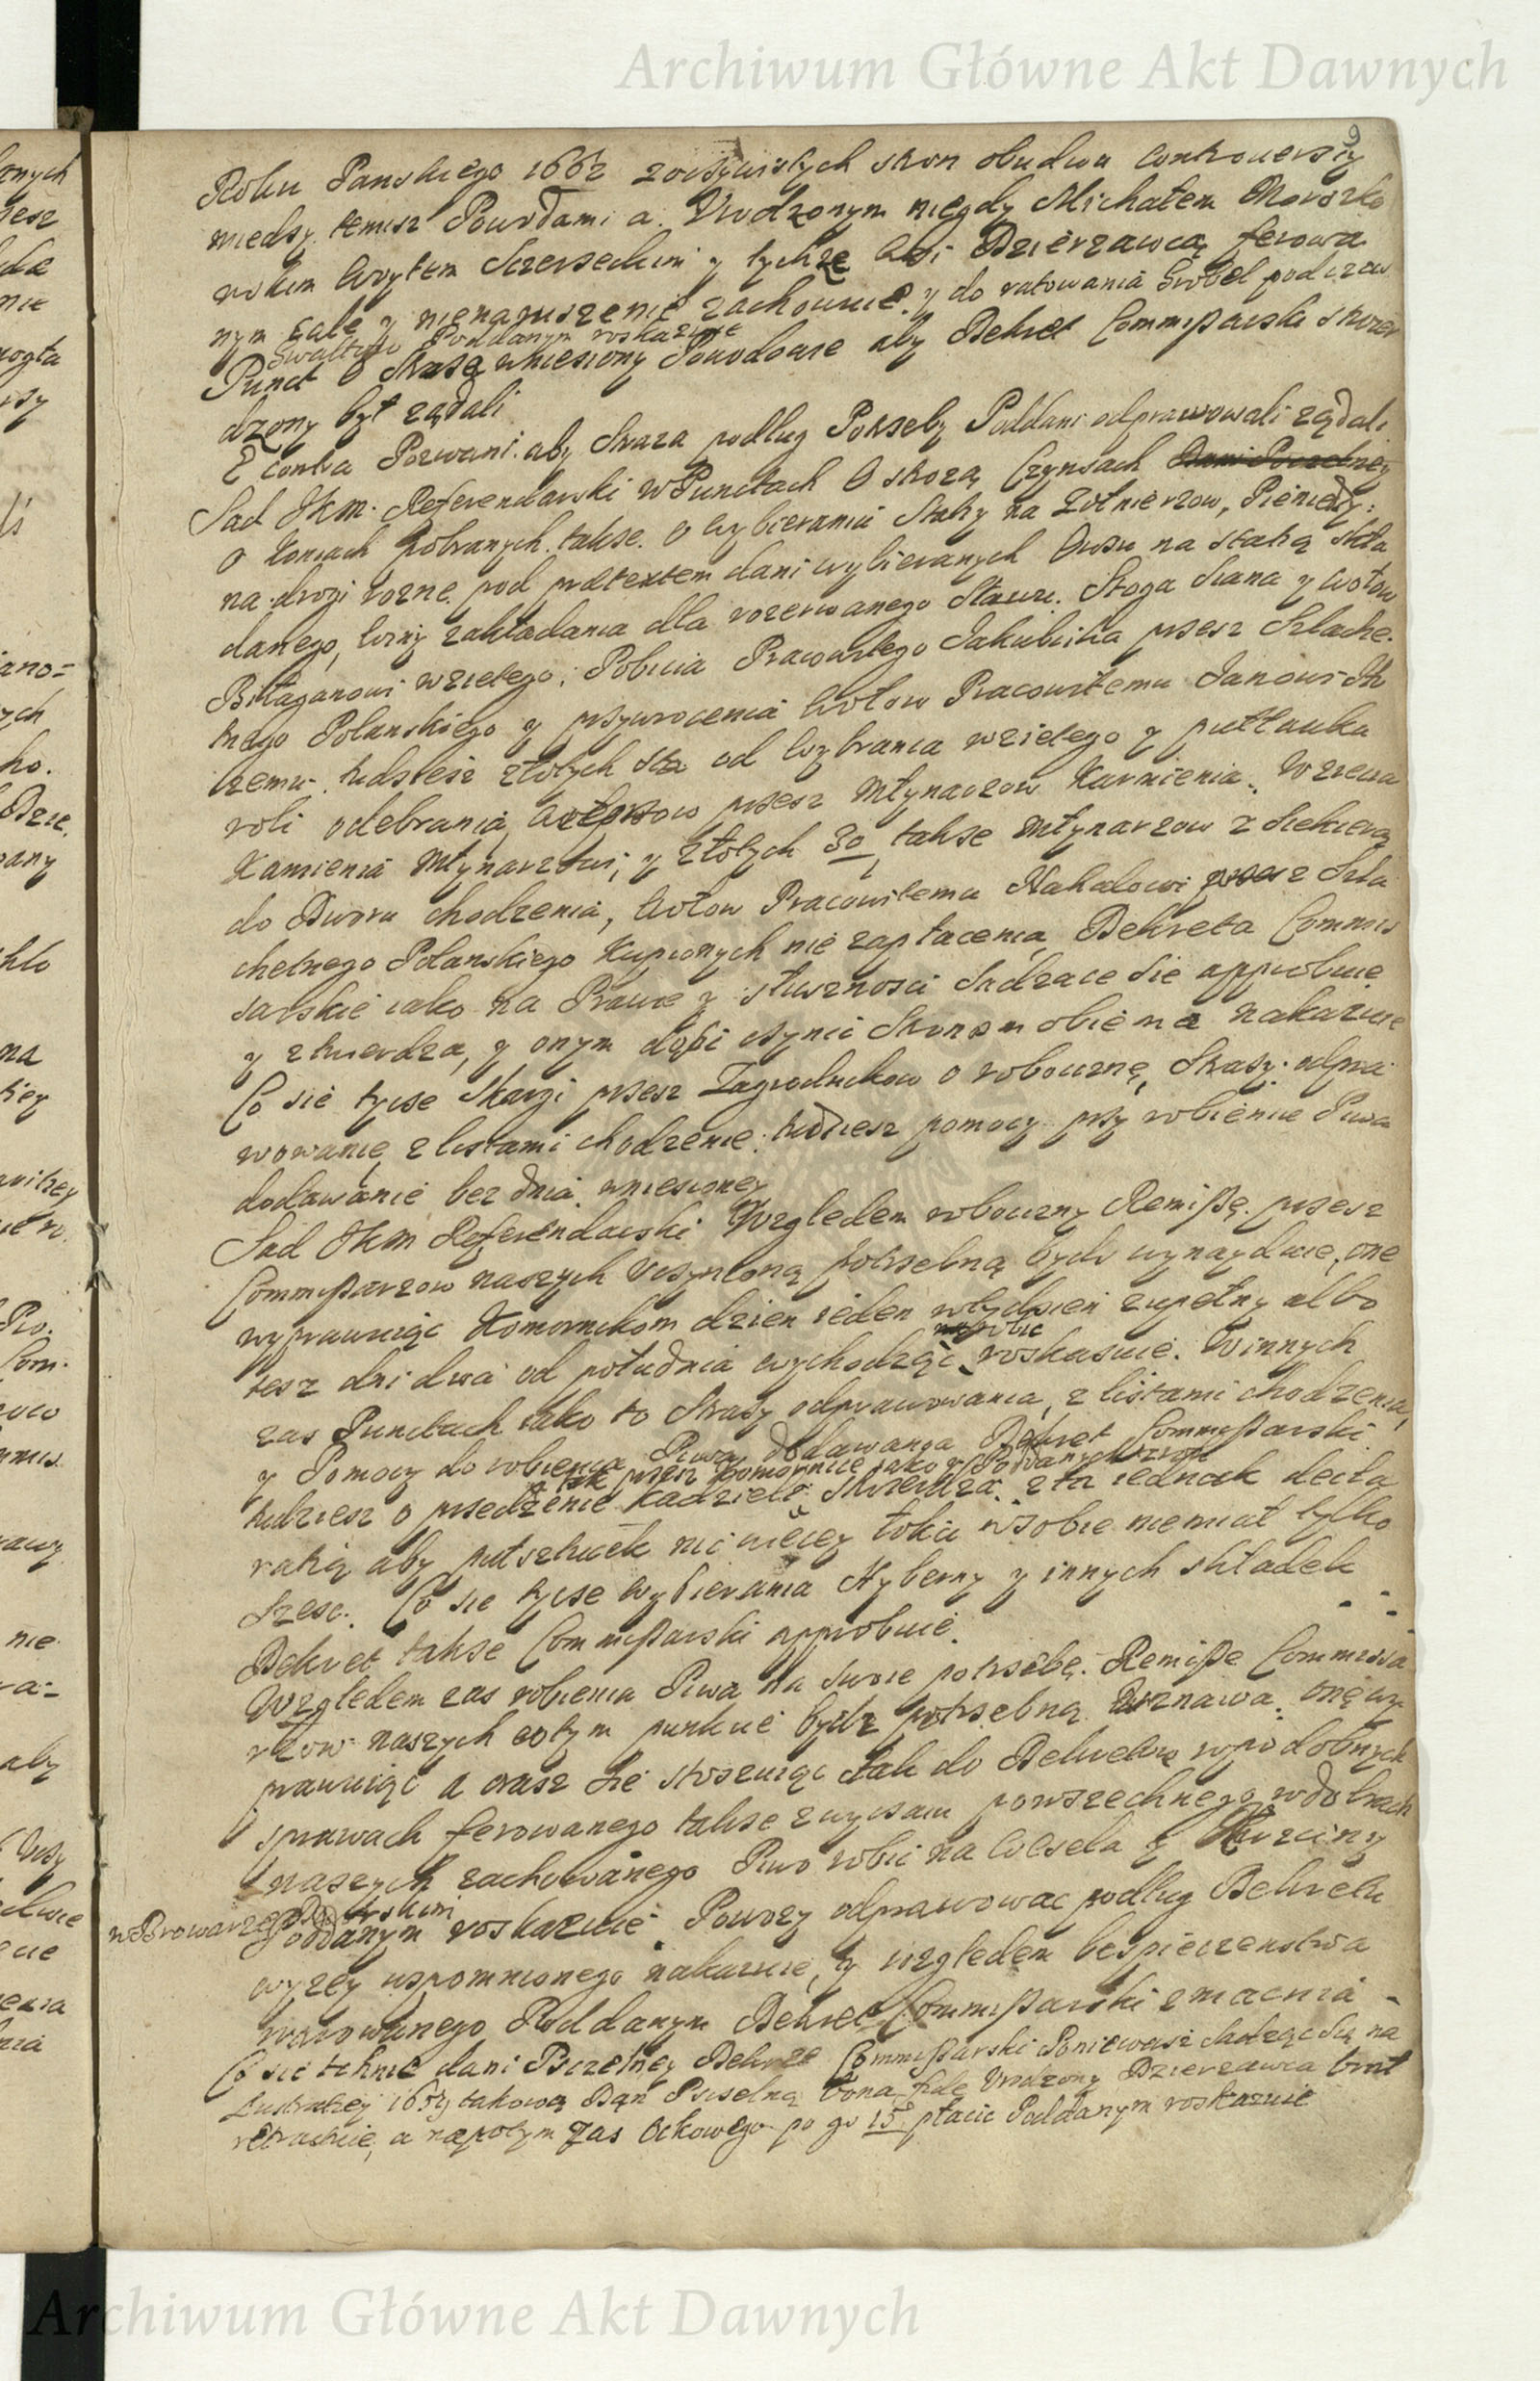 Archiwum Główne Akt Dawnych
9
Roku Panskiego 1662 zoczywistych stron obudwu Controuersiy
miedzy temisz Powodami a Vrodzonym niegdy Michałem Morszko
wskim Woytem Szerseckim y tychże Wsi Dzierzawcą ferowa
nym cale y nienaruszenie zachowuie y do ratowania Grobel podczas
Gwałtu Poddanym roskazuie
Punct o Straszą wniesiony Powodowie aby Dekret Commissarski stwier
dzony był ządali
E contra Pozwani aby Straza podług Potrzeby Poddani odprawowali ządali
Sad JKM Referendarski w Punctach O strozą Czynsach Dani Pszczelney
o Koniach pobranych, takse o wybieraniu Staky na Zołnierzow, Pieniedzy
na drogi rozne pod praetextem dani wybieranych Owsu na statią skła
danego, winy zakładania dla rozerwanego Stawu. Stoga Siana y Wołow
wzietego, Pobicia Pracowitego Jakubika przez Szlache
tnego Polanskiego y przywrocenia Wołow Pracowitemu Janowi
czemu tudziesz złotych sta od Wybranca wzietego y
roli odebrania, Wieprzow przesz Młynarzow Karmienia, Wziecia
Kamienia Młynarzowi, y Złotych 30, takse Młynarzow z Siekierą
do Dworu chodzenia, Wołow Pracowitemu przesz Szla
chetnego Polanskiego Kupionych nie zapłacenia Dekreta Commis
sarskie iako na Prawie y słusznosci Sadzace Sie approbuie
y ztwierdza, y onym dosić czynić Stronom obiema nakazuie
Co sie tycze Skargi przesz Zagrodnikow o roboczne, Strazy odpra
wowanie z listami chodzenie, tudziesz pomocy przy robieniu Piwa
dodawanie bez dnia wniesioney
Sad JKM Referendarski Wzgledem roboczny Remissę przesz
Commissarzow naszych Uczynioną potrzebną bydz wynayduie, one
wyprawuiąc Komornikom dzien ieden w tydzień zupełny albo
tesz dni dwa od południa wychodząc robić roskazuie. W innych
zas Punctach iako to Strazy odprawowania, z listami chodzenia,
y Pomocy do robienia Piwa dodawania Dekret Commissarski
tak przez Komornice iako y Poddanych
tudziesz o przedzenie Kadzieli Stwierdza z tą iednak decla
ratią aby pułsztuczek nic wiecey łokci w sobie nie miał tylko
szesc. Co sie tycze wybierania Hyberny y innych składek
Dekret takse Commissarski approbuie.
Wzgledem zas robienia Piwa na swoie potrzebę Remisse Commissa
rzow naszych w tym punkcie bydz potrzebną uznawa, onę wy
prawuiąc a oraz Sie stosuiąc tak do Dekretu w podobnych
sprawach ferowanego takse zwyczaiu powszechnego w dobrach
naszych zachowanego Piwo robić na Wesela y Krzciny
w Browarze Dworskim
Poddanym roskazuie. Powozy odprawowac podług Dekretu
wyzey wspomnionego nakazuie, y wzgledem bespieczenstwa
warowanego Poddanym Dekret Commissarski zmacnia
Co sie tchnie dani Pszczelney Dekret Commissarski Poniewasz Sadząc Się na
Lustratiey 1659 takową Dań Pszczelną bona fide Vrodzony Dzierzawca brał
retractuie, a napotym Zas Oczkowego po gr 15 płacic Poddanym roskazuie
Archiwum Główne Akt Dawnych